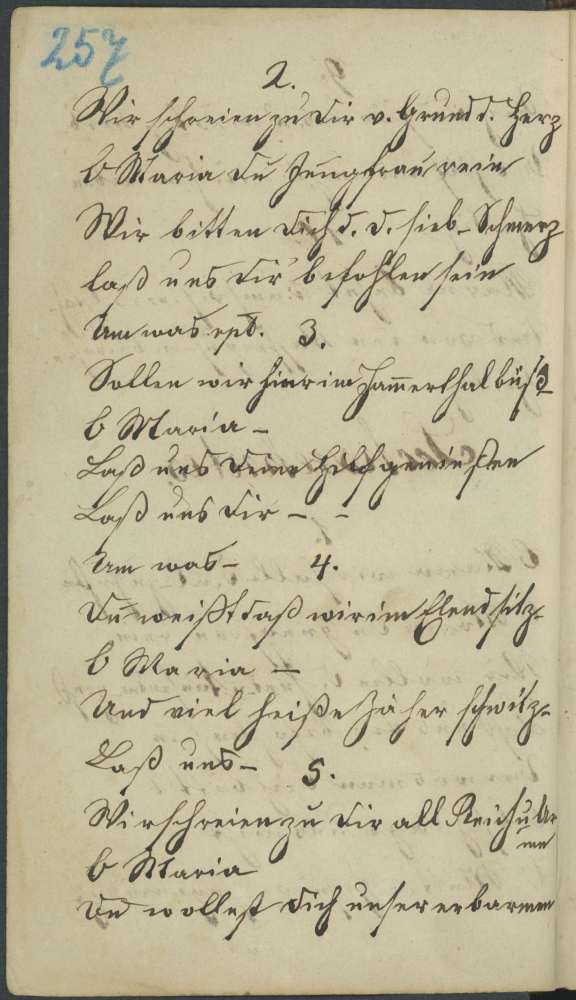 257
2.
Wir schreien zu dir v. Grund d. Herz
O Maria du Jungfrau rein
Wir bitten dich d. d. sieb. Schmerz
laß uns dir befohlen sein
Um was ept. 3.
Sollen wir hier im Jam̅erthal büß
O Maria –
Laß uns deine Hilf genießen
Laß uns dir – –
Um was – 4.
Du weißt daß wir im Elend sitz-
O Maria –
Und viel heiße Zäher schwitz-
Laß uns – 5.
Wir schreien zu dir all Reich u Ar
me
O Maria
Du wollest dich unser erbarmen